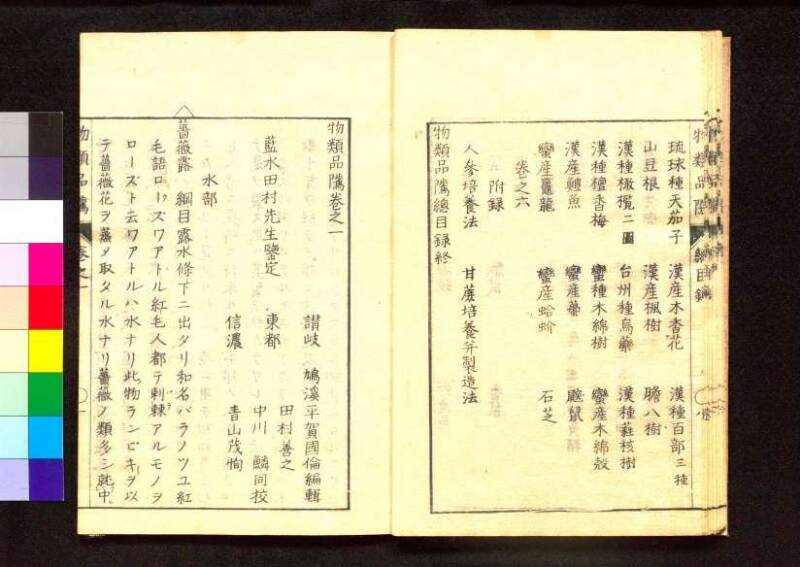 琉球種天茄子 漢産木香花 漢種百部三種
山豆根 漢産楓樹 膽八樹
漢種橄欖二圖 台州種烏藥 漢種蕤核樹
漢種檀香梅 蠻種木綿樹 蠻産木綿殻
漢産鱟魚 蠻産 鼴鼠
蠻産鼉龍 蠻産蛤蚧 石芝
卷之六
附録
人參培養法 甘蔗培養幷製造法
物類品隲總目録終
物類品隲 總目録
物類品隲卷之一
讃岐 鳩溪平賀國倫編輯
田村善之
藍水田村先生鑒定 東都 中川 鱗同校
信濃 青山茂恂
水部
薔薇露 綱目露水條下ニ出タリ和名バラノツユ紅
毛語ローズワアトル紅毛人都テ刺棘アルモノヲ
ローズト云ワアトルハ水ナリ此物ランビキヲ以
テ薔薇花ヲ蒸メ取タル水ナリ薔薇ノ類多シ就中
物類品隲 卷之一